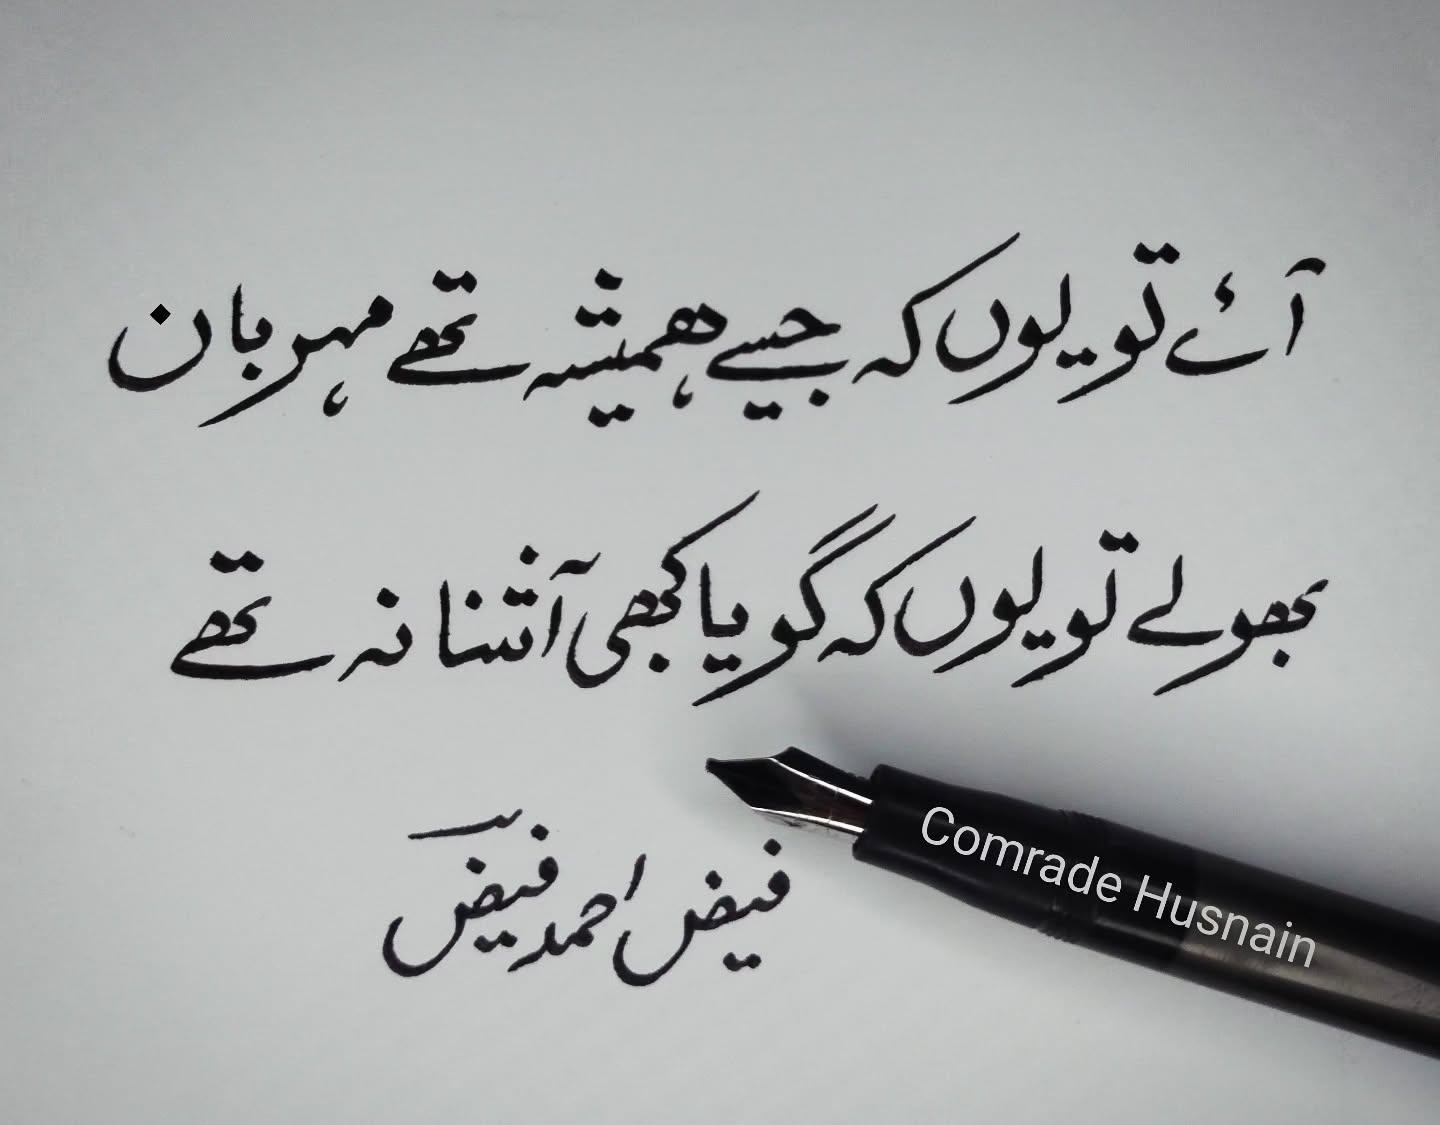 آئے تو یوں کہ جیسے ہمیشہ تھے مہربان
بھولے تو یوں کہ گویا کبھی آشنا نہ تھے
فیض احمد فیض
Comrade Husnain